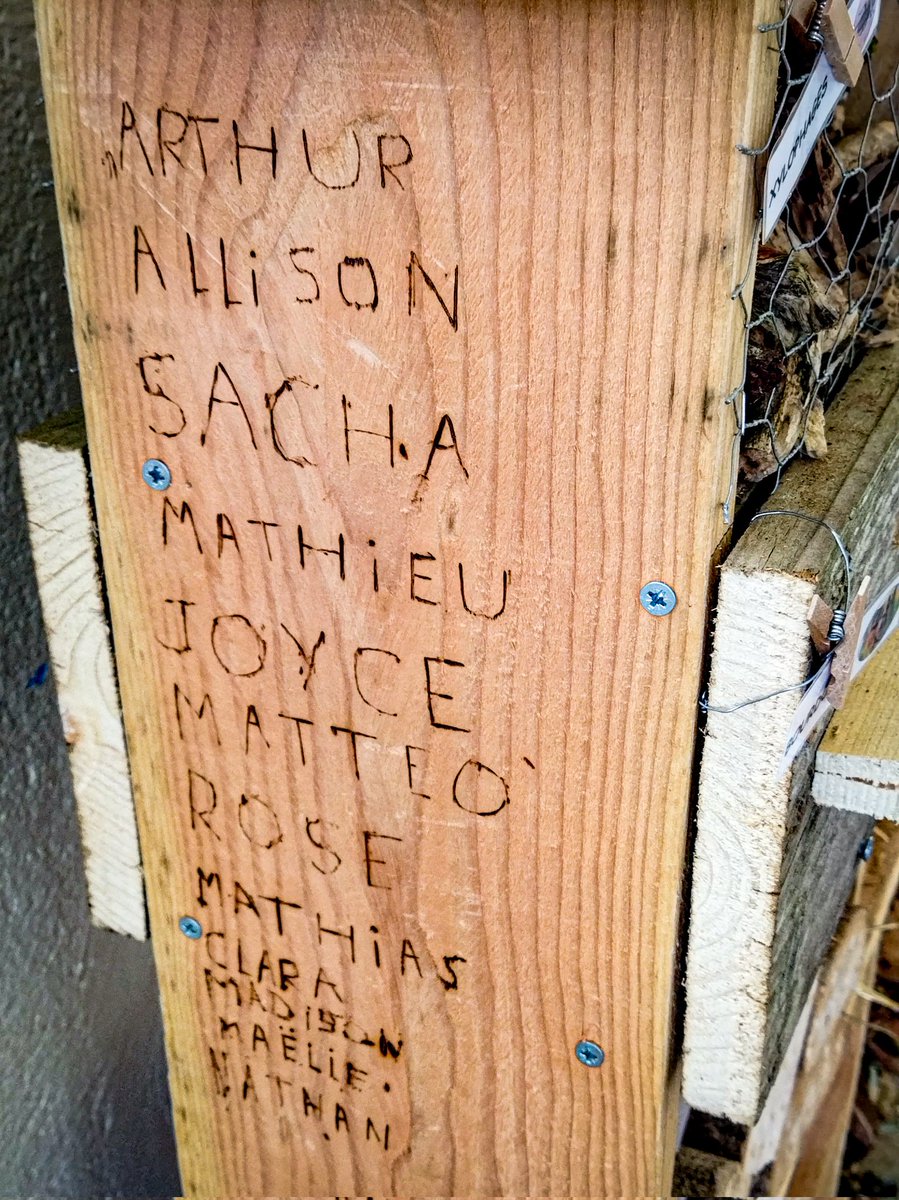 ARTHUR
ALLiSON
SACHA
MATHiEU
JOYCE
MATTEO'
ROSE
MATHiAS
CLARA
MADiSON
MAËLiE.
NATHAN
XYLOPHAGES